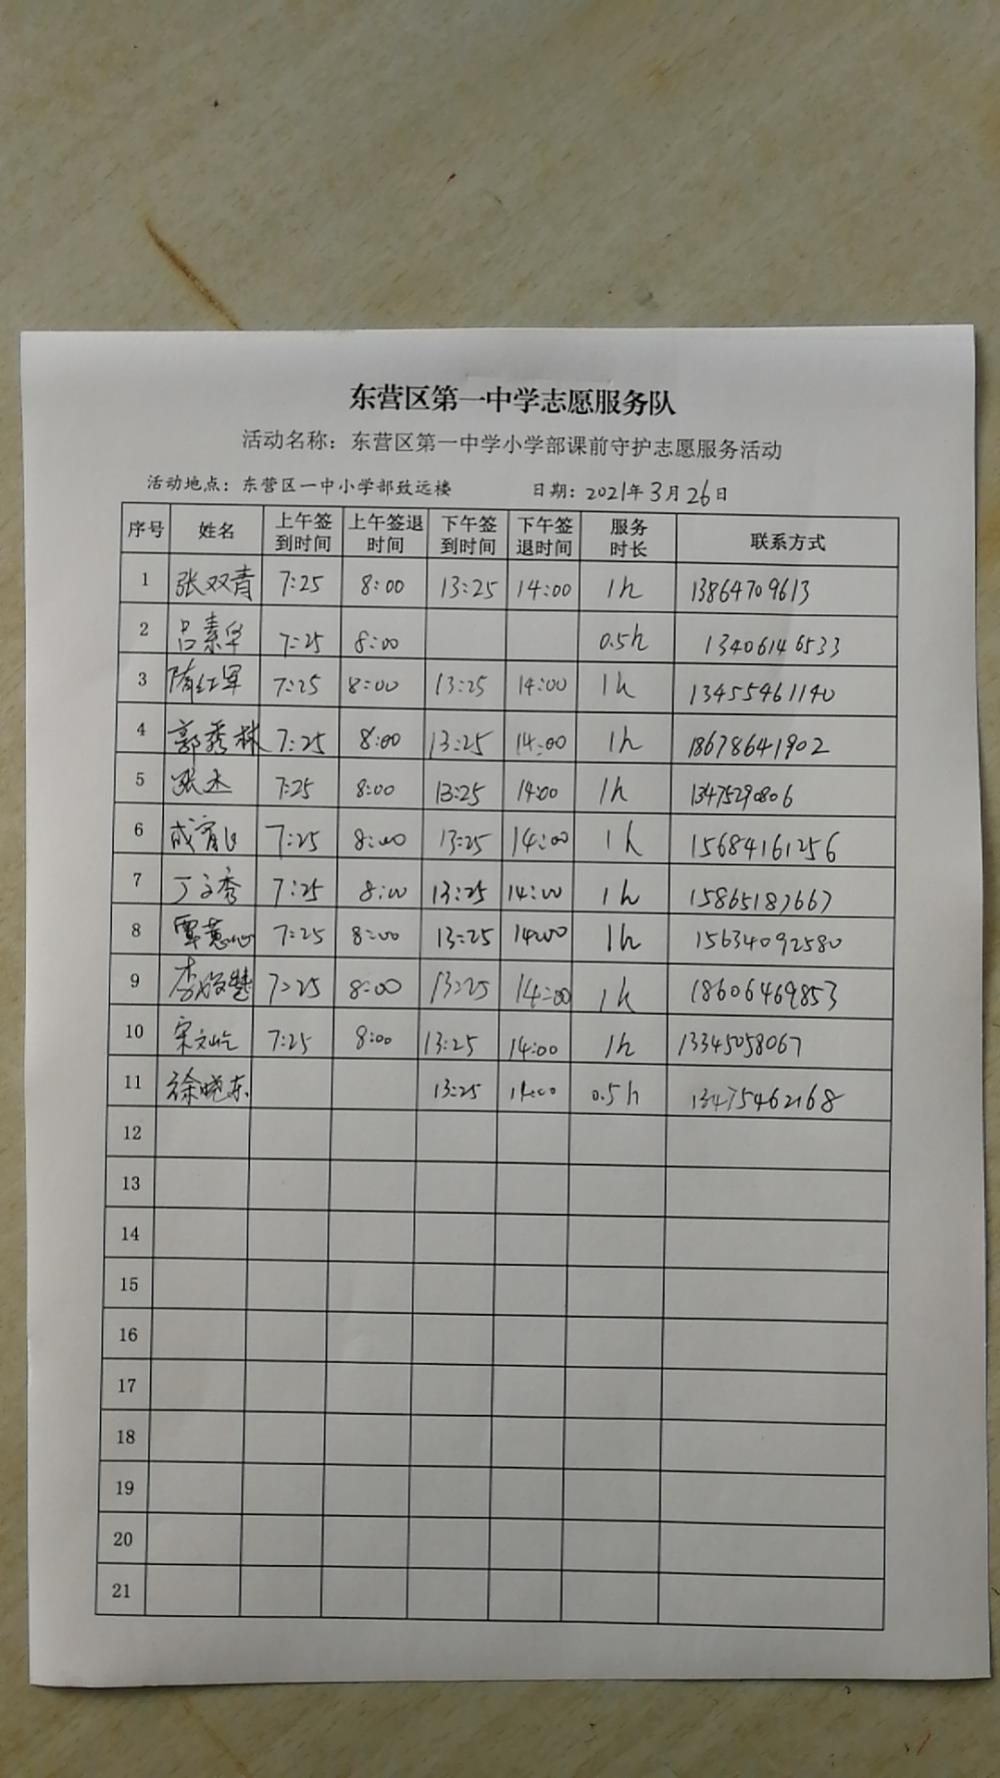 东营区第一中学志愿服务队
活动名称：东营区第一中学小学部课前守护志愿服务活动
活动地点：东营区一中小学部致远楼 日期：2021年3月26日
序号 姓名 上午签到时间 上午签退时间 下午签到时间 下午签退时间 服务时长 联系方式
1 张双青 7:25 8:00 13:25 14:00 1h 13864709613
2 吕素华 7:25 8:00 0.5h 13406146533
3 隋红军 7:25 8:00 13:25 14:00 1h 13455461140
4 郭秀林 7:25 8:00 13:25 14:00 1h 18678641902
5 张杰 7:25 8:00 13:25 14:00 1h 13475290806
6 7:25 8:00 13:25 14:00 1h 15684161256
7 丁文秀 7:25 8:00 13:25 14:00 1h 15865187667
8 覃慧心 7:25 8:00 13:25 14:00 1h 15634092580
9 7:25 8:00 13:25 14:00 1h 18606469853
10 宋文屹 7:25 8:00 13:25 14:00 1h 13345058067
11 徐晓东 13:25 14:00 0.5h 13475462168
12
13
14
15
16
17
18
19
20
21